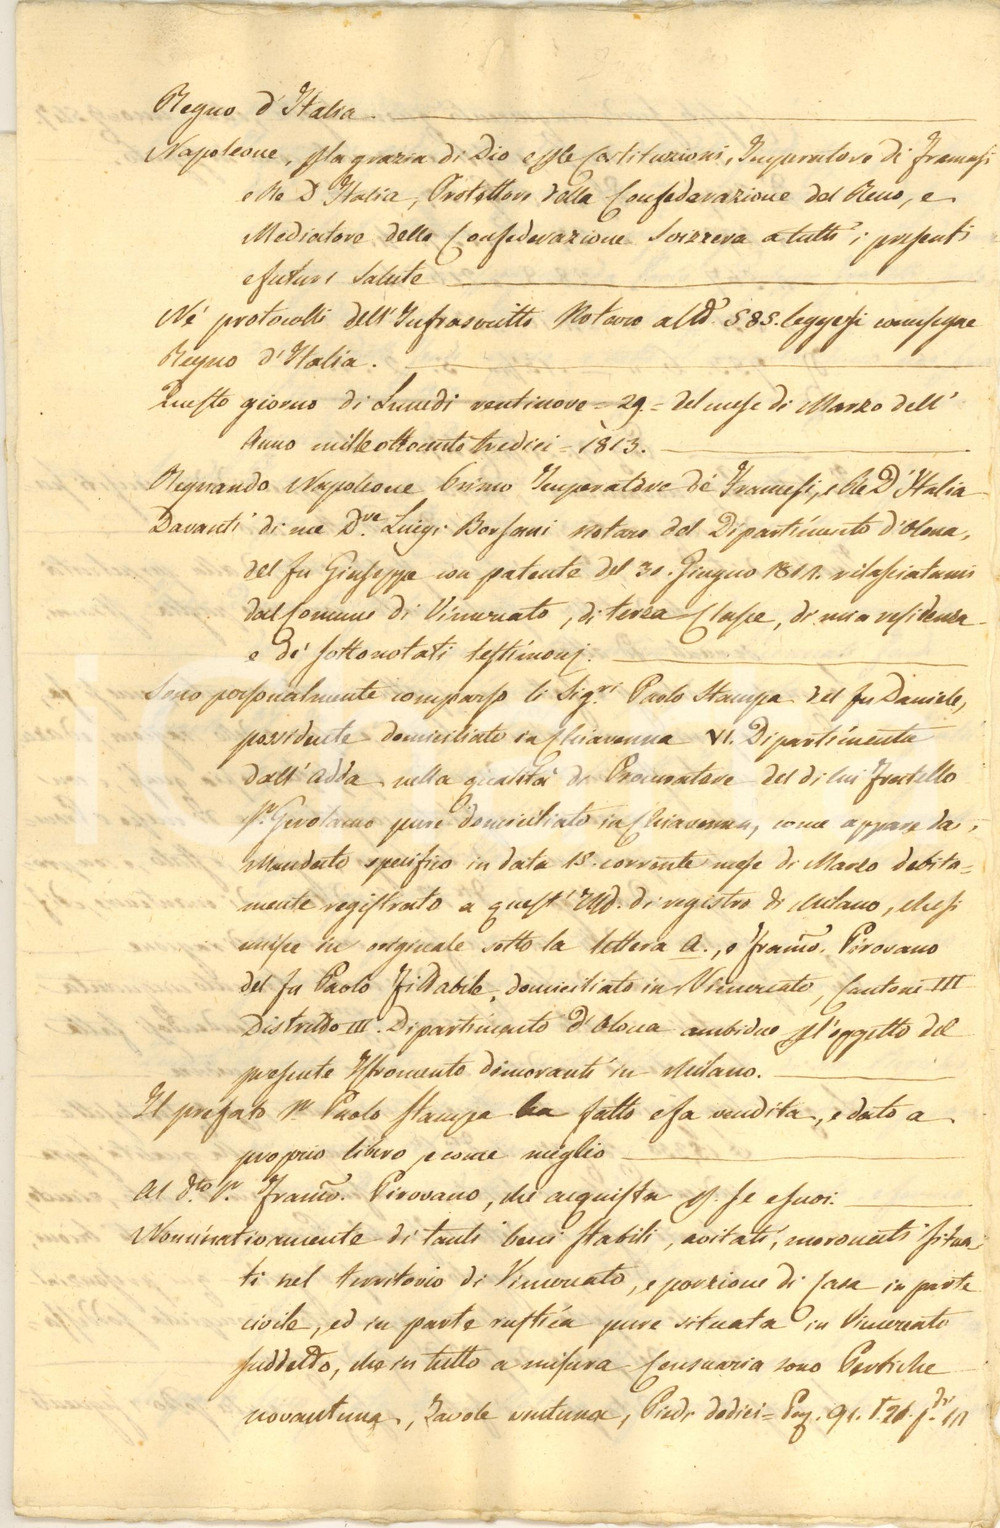 Regno d'Italia.
Napoleone, p la grazia di Dio e p le Costituzioni, Imperatore di Francesi
e Re D'Italia, Protettore della Confederazione del Reno, e
Mediatore della Confederazione Svizzera a tutti i presenti
e futuri Salute
Ne' protocolli dell'Infrascritto Notaro al No 585. leggesi come segue
Regno d'Italia.
Questo giorno di Lunedi ventinove = 29 = del mese di Marzo dell'
Anno mille ottocento tredici = 1813.
Regnando Napoleone Primo Imperatore de' Francesi, e Re D'Italia
Davanti di me Dre Luigi Borsani Notaro del Dipartimento d'Olona,
del fu Giuseppe con patente del 30. Giugno 1811. rilasciatami
dal Comune di Vimercato, di terza Classe, di mia residenza
e de' sottonotati testimonj.
Sono personalmente comparsi li Sigri Paolo Stampa del fu Daniele,
possidente domiciliato in Chiavenna VI. Dipartimento
dell'Adda nella qualità di Procuratore del di lui Fratello
Sr Girolamo pure domiciliato in Chiavenna, come appare da
Mandato specifico in data 18. corrente mese di Marzo debita=
mente registrato a quest'Uffo. di registro di Milano, che si
unisce in originale sotto la lettera A., e Franco. Pirovano
del fu Paolo Fittabile, domiciliato in Vimercato, Cantone III
Distretto III. Dipartimento d'Olona ambidue p l'oggetto del
presente Istromento dimoranti in Milano.
Il prefato Sr Paolo Stampa ha fatto e fa vendita, e dato a
proprio libero, e come meglio
Al dto Sr Franco. Pirovano, che acquista p. se e suoi.
Nominativamente di tanti beni stabili, avitati, moronati situa=
ti nel territorio di Vimercato, e porzione di Casa in parte
civile, ed in parte rustica pure situata in Vimercato
suddetto, che in tutto a misura Censuaria sono Pertiche
novantuna, Tavole ventuna, Piedi dodici = Per. 91. T. 21. pdi